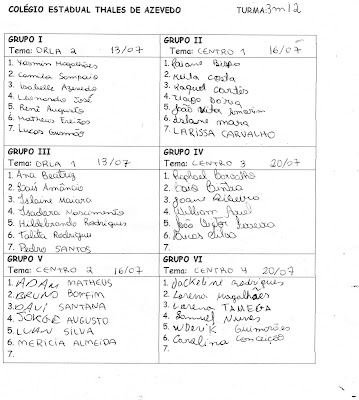 COLÉGIO ESTADUAL THALES DE AZEVEDO TURMA: 3m12
GRUPO I
Tema: ORLA 2 13/07
1. Yasmin Magalhães
2. Camila Sampaio
3. Isabelle Azevedo
4. Leonardo José
5. Renê Augusto
6. Matheus Freitas
7. Lucas Gusmão
GRUPO II
Tema: CENTRO 1 16/07
1. Bispo
2. Keila Costa
3. Raquel Cortês
4. Tiago
5. João Victor
6. Islane mara
7. LARISSA CARVALHO
GRUPO III
Tema: ORLA 1 13/07
1. Ana Beatriz
2. Laís Amâncio
3. Islaine Maiara
4. Isadora Nascimento
5. Hildebrando Rodrigues
6. Talita Rodrigues
7. Pedro SANTOS
GRUPO IV
Tema: CENTRO 3 20/07
1. Raphael Carvalho
2. 
3. Ribeiro
4. William
5. João Victor
6. Lucas Silva
7.
GRUPO V
Tema: CENTRO 2 16/07
1. ADAN MATHEUS
2. BRUNO BOMFIM
3. DAVI SANTANA
4. JORGE AUGUSTO
5. LUAN SILVA
6. MERICIA ALMEIDA
7.
GRUPO VI
Tema: CENTRO 4 20/07
1. Jackeline Rodrigues
2. Lorena Magalhães
3. Lorena
4. Samuel Nunes
5. WDERIK Guimarães
6. Carolina Conceição
7.